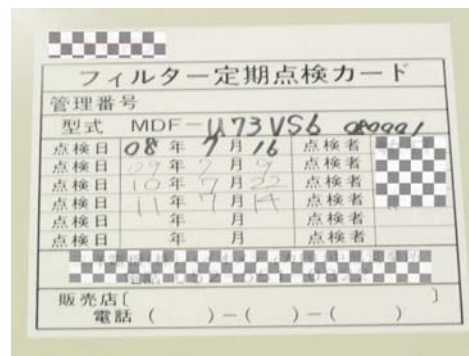 フィルター定期点検カード
管理番号
型式 MDF-U73VS6 080001
点検日 08年 7月16 点検者
点検日 09年 7月9 点検者
点検日 10年 7月22 点検者
点検日 11年 7月14 点検者
点検日 年 月 点検者
点検日 年 月 点検者
販売店〔 〕
電話 ( )-( )-( )